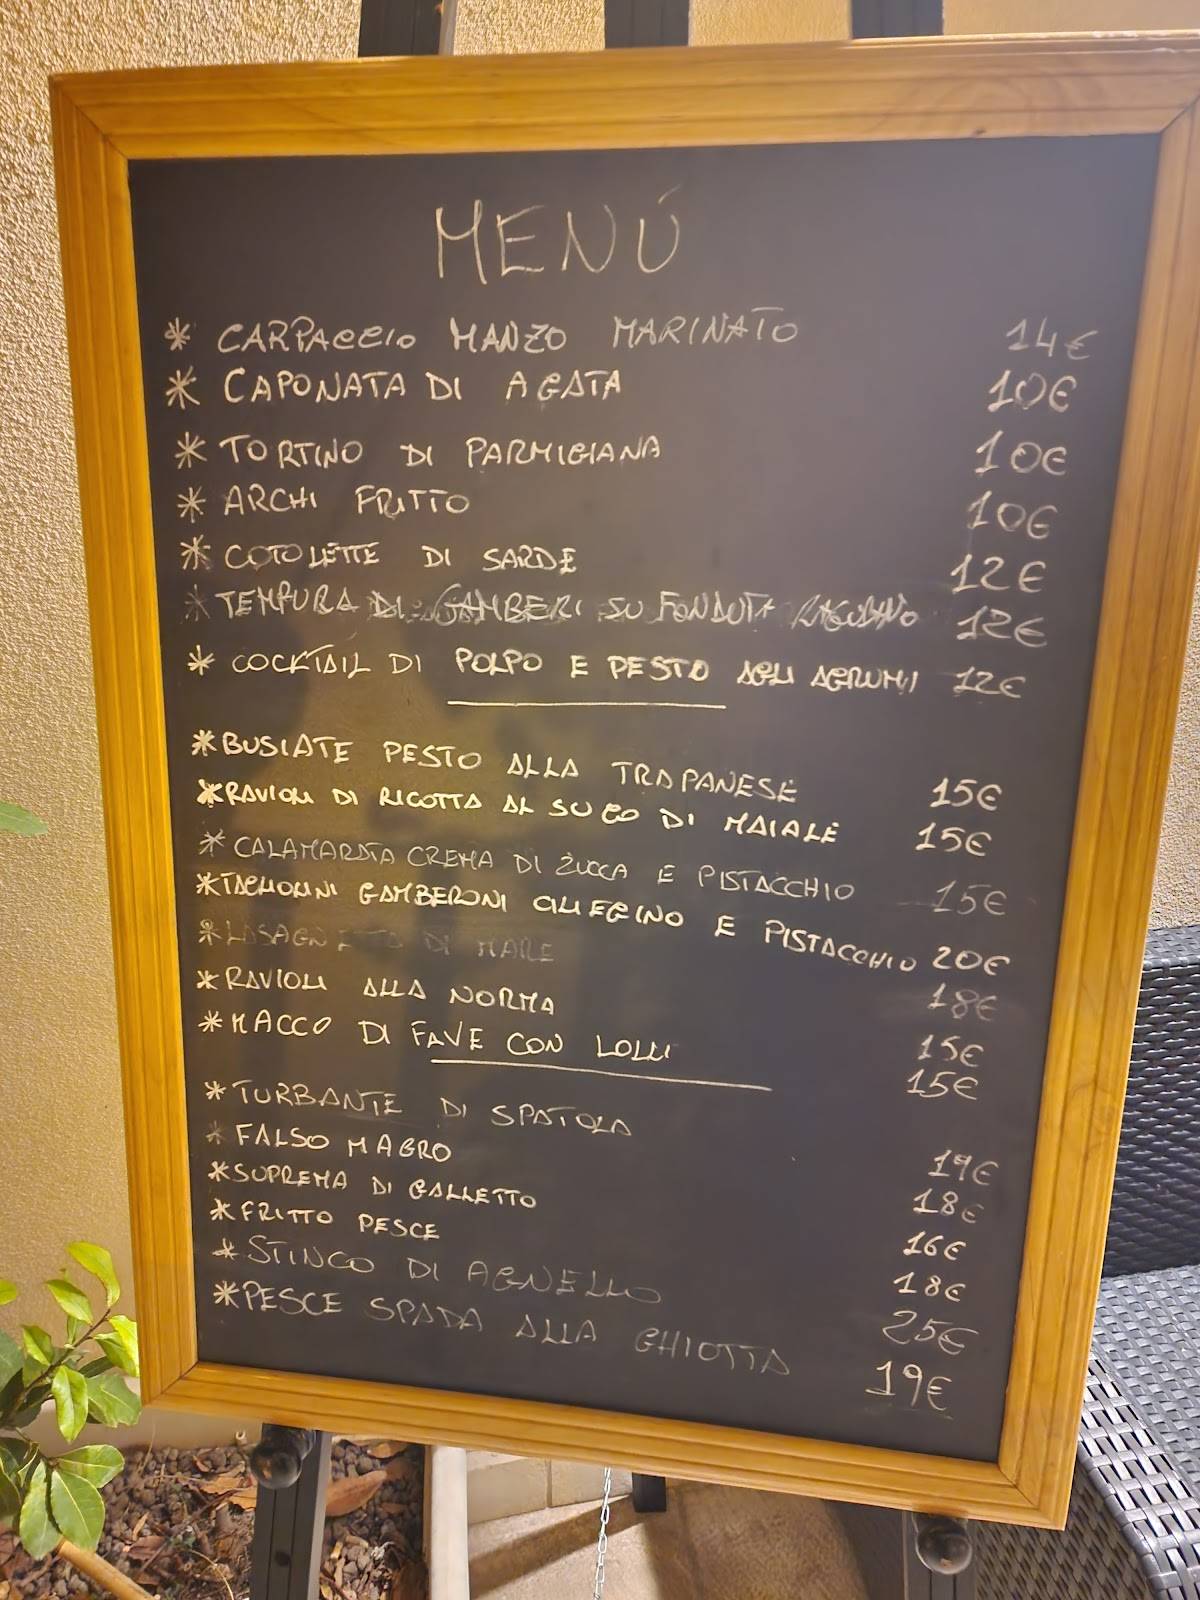 MENÚ
* CARPACCIO MANZO MARINATO 14€
* CAPONATA DI AGATA 10€
* TORTINO DI PARMIGIANA 10€
* ARCHI FRITTO 10€
* COTOLETTE DI SARDE 12€
* TEMPURA DI GAMBERI SU FONDUTA RAGUSANO 12€
* COCKTAIL DI POLPO E PESTO AGLI AGRUMI 12€
* BUSIATE PESTO ALLA TRAPANESE 15€
* RAVIOLI DI RICOTTA AL SUGO DI MAIALE 15€
* CALAMARATA CREMA DI ZUCCA E PISTACCHIO 15€
* TAGLIOLINI GAMBERONI CILIEGINO E PISTACCHIO 20€
* DI MARE 18€
* RAVIOLI ALLA NORMA 15€
* MACCO DI FAVE CON LOLLI 15€
* TURBANTE DI SPATOLA 19€
* FALSO MAGRO 18€
* SUPREMA DI GALLETTO 16€
* FRITTO PESCE 18€
* STINCO DI AGNELLO 25€
* PESCE SPADA ALLA GHIOTTA 19€